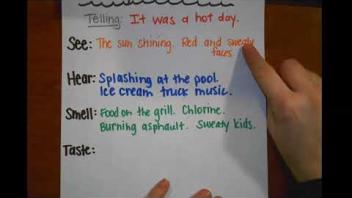 Telling: It was a hot day.
See: The sun shining. Red and sweaty
faces.
Hear: Splashing at the pool.
Ice cream truck music.
Smell: Food on the grill. Chlorine.
Burning asphault. Sweaty kids.
Taste: